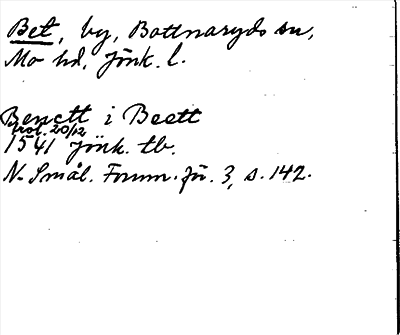 Bet, by, Bottnaryds sn,
Mo hd, Jönk. l.
Benett i Beett
prot. 20/12
1541 Jönk. tb.
N. Smål. Fornm. för. 3, s. 142.